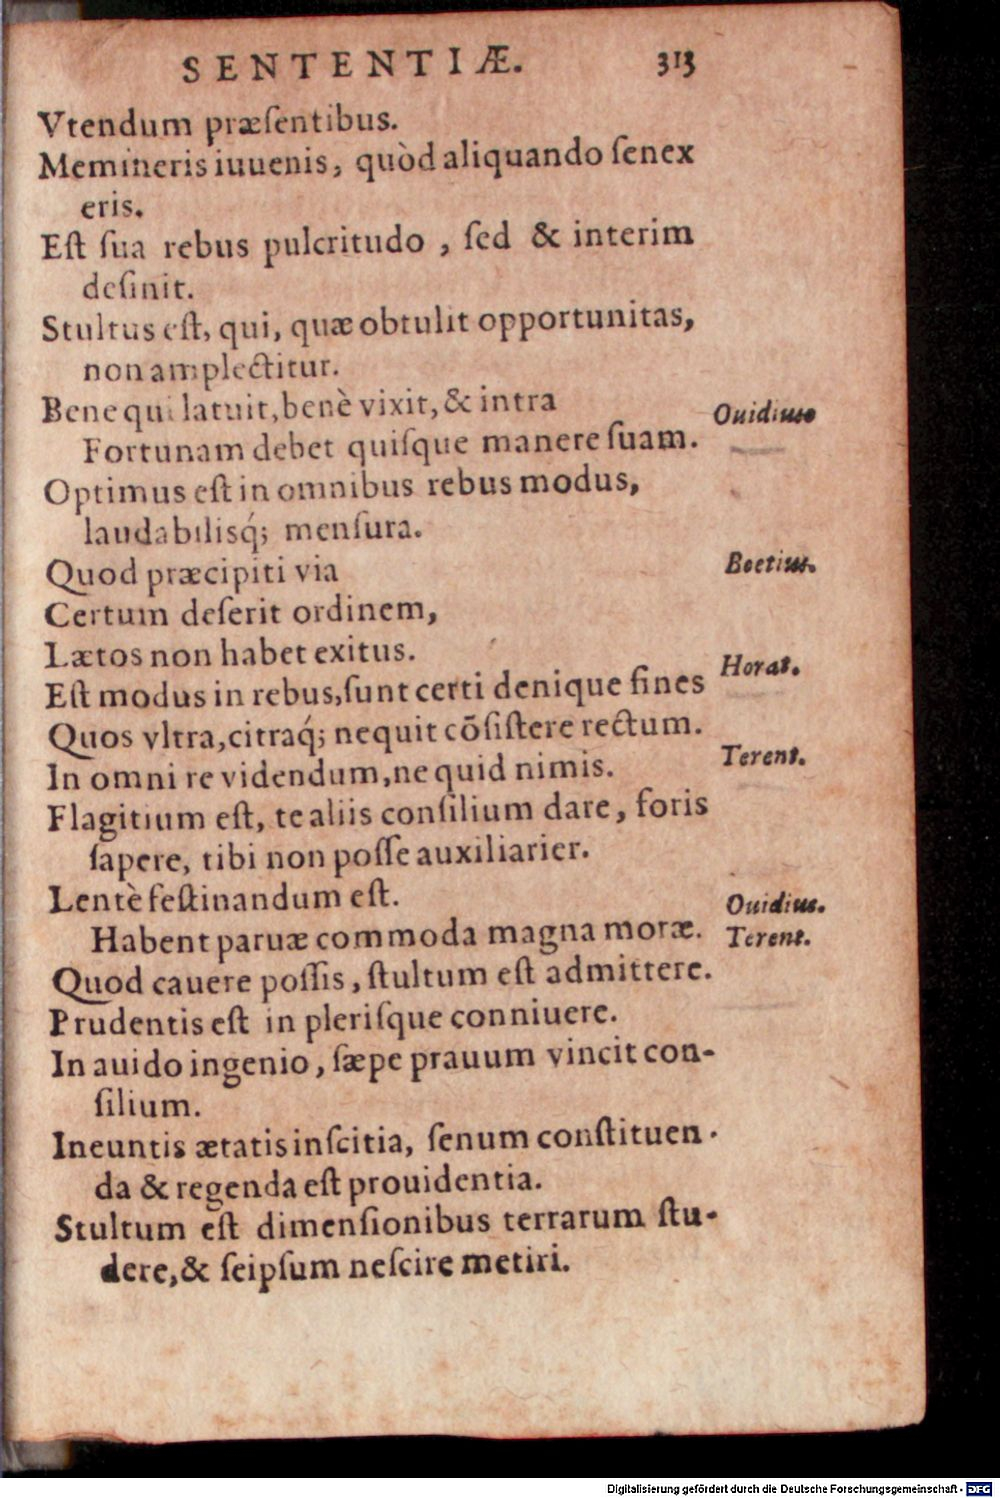 SENTENTIÆ. 313
Vtendum præſentibus.
Memineris iuuenis, quòd aliquando ſenex
eris.
Eſt ſua rebus pulcritudo, ſed & interim
deſinit.
Stultus eſt, qui, quæ obtulit opportunitas,
non amplectitur.
Bene qui latuit, benè vixit, & intra
Ouidius
Fortunam debet quiſque manere ſuam.
Optimus eſt in omnibus rebus modus,
laudabilisq́; menſura.
Quod præcipiti via
Boetius.
Certum deſerit ordinem,
Lætos non habet exitus.
Eſt modus in rebus, ſunt certi denique fines
Horat.
Quos vltra, citraq́; nequit cõſiſtere rectum.
In omni re videndum, ne quid nimis.
Terent.
Flagitium eſt, te aliis conſilium dare, foris
ſapere, tibi non poſſe auxiliarier.
Lentè feſtinandum eſt.
Ouidius.
Habent paruæ commoda magna moræ.
Terent.
Quod cauere poſſis, ſtultum eſt admittere.
Prudentis eſt in pleriſque conniuere.
In auido ingenio, ſæpe prauum vincit con-
ſilium.
Ineuntis ætatis inſcitia, ſenum conſtituen-
da & regenda eſt prouidentia.
Stultum eſt dimenſionibus terrarum ſtu-
dere, & ſeipſum neſcire metiri.
Digitalisierung gefördert durch die Deutsche Forschungsgemeinschaft - DFG